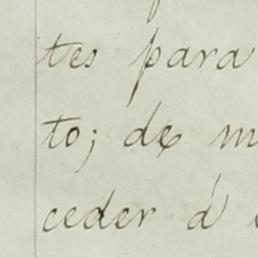 tes para
to; de m
ceder á